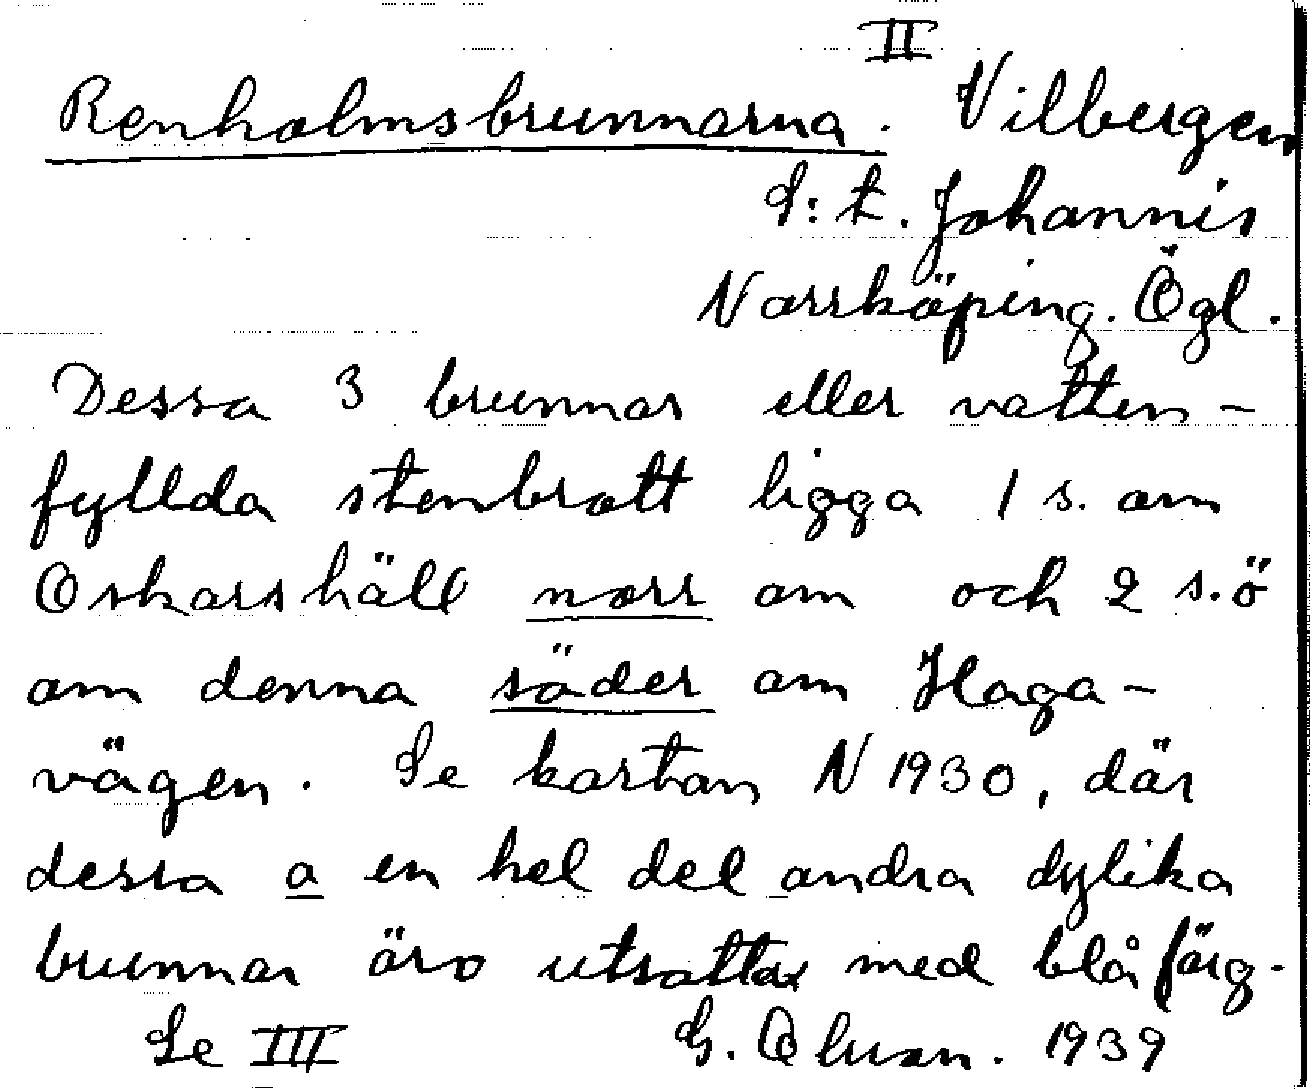 II
Renholmsbrunnarna. Vilbergen
S:t. Johannis
Norrköping. Ögl.
Dessa 3 brunnar eller vatten-
fyllda stenbrott ligga 1 s. om
Oskarshäll norr om och 2 s.ö
om denna söder om Haga-
vägen. Se kartan N 1930, där
dessa a en hel del andra dylika
brunnar äro utsatta med blå färg.
Se III G. 1939